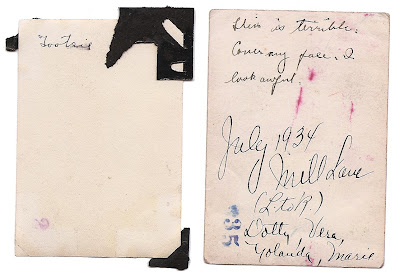 Tootsie
This is terrible.
Cover my face. I
look awful.
July 1934
Mill Lane
(L to R)
Dotty, Vera,
Yolanda, Marie
35